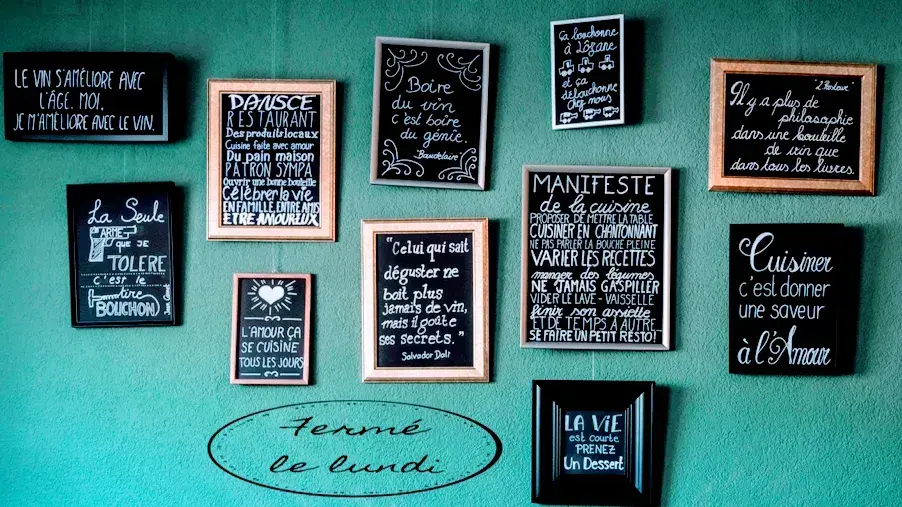 LE VIN S'AMÉLIORE AVEC
L'ÂGE. MOI,
JE M'AMÉLIORE AVEC LE VIN.
DANSCE
RESTAURANT
Des produits locaux
Cuisine faite avec amour
Du pain maison
PATRON SYMPA
Ouvrir une bonne bouteille
Célébrer la vie
EN FAMILLE, ENTRE AMIS
ETRE AMOUREUX
Boire
du vin
c'est boire
du génie.
"Baudelaire"
ça bouchonne
à Lôzane
et ça
débouchonne
Chez nous
Il y a plus de
philosophie
dans une bouteille
de vin que
dans tous les livres.
La Seule
ARME
que je
TOLERE
c'est le
tire
BOUCHON
L'AMOUR ÇA
SE CUISINE
TOUS LES JOURS
"Celui qui sait
déguster ne
boit plus
jamais de vin,
mais il goûte
ses secrets."
Salvador Dali
MANIFESTE
de la cuisine
PROPOSER DE METTRE LA TABLE
CUISINER EN CHANTONNANT
NE PAS PARLER LA BOUCHE PLEINE
VARIER LES RECETTES
manger des légumes
NE JAMAIS GASPILLER
VIDER LE LAVE-VAISSELLE
finir son assiette
ET DE TEMPS À AUTRE
SE FAIRE UN PETIT RESTO!
Cuisiner
c'est donner
une saveur
à l'Amour
LA ViE
est courte
PRENEZ
Un Dessert
Fermé
le lundi